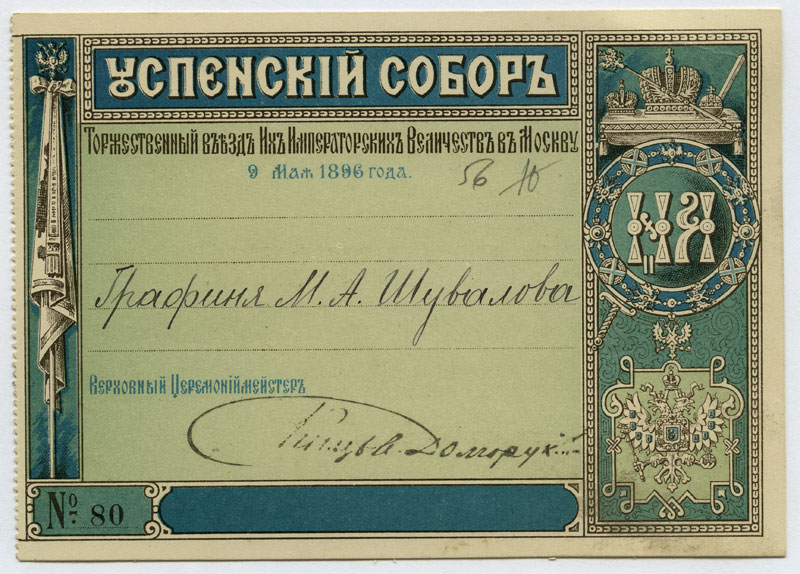 УСПЕНСКІЙ СОБОРЪ
Торжественный въѣздъ Ихъ Императорскихъ Величествъ въ Москву
9 Мая 1896 года.
56
Графиня М. А. Шувалова
Верховный Церемоніймейстеръ
Князь А. Долгорукій
№ 80